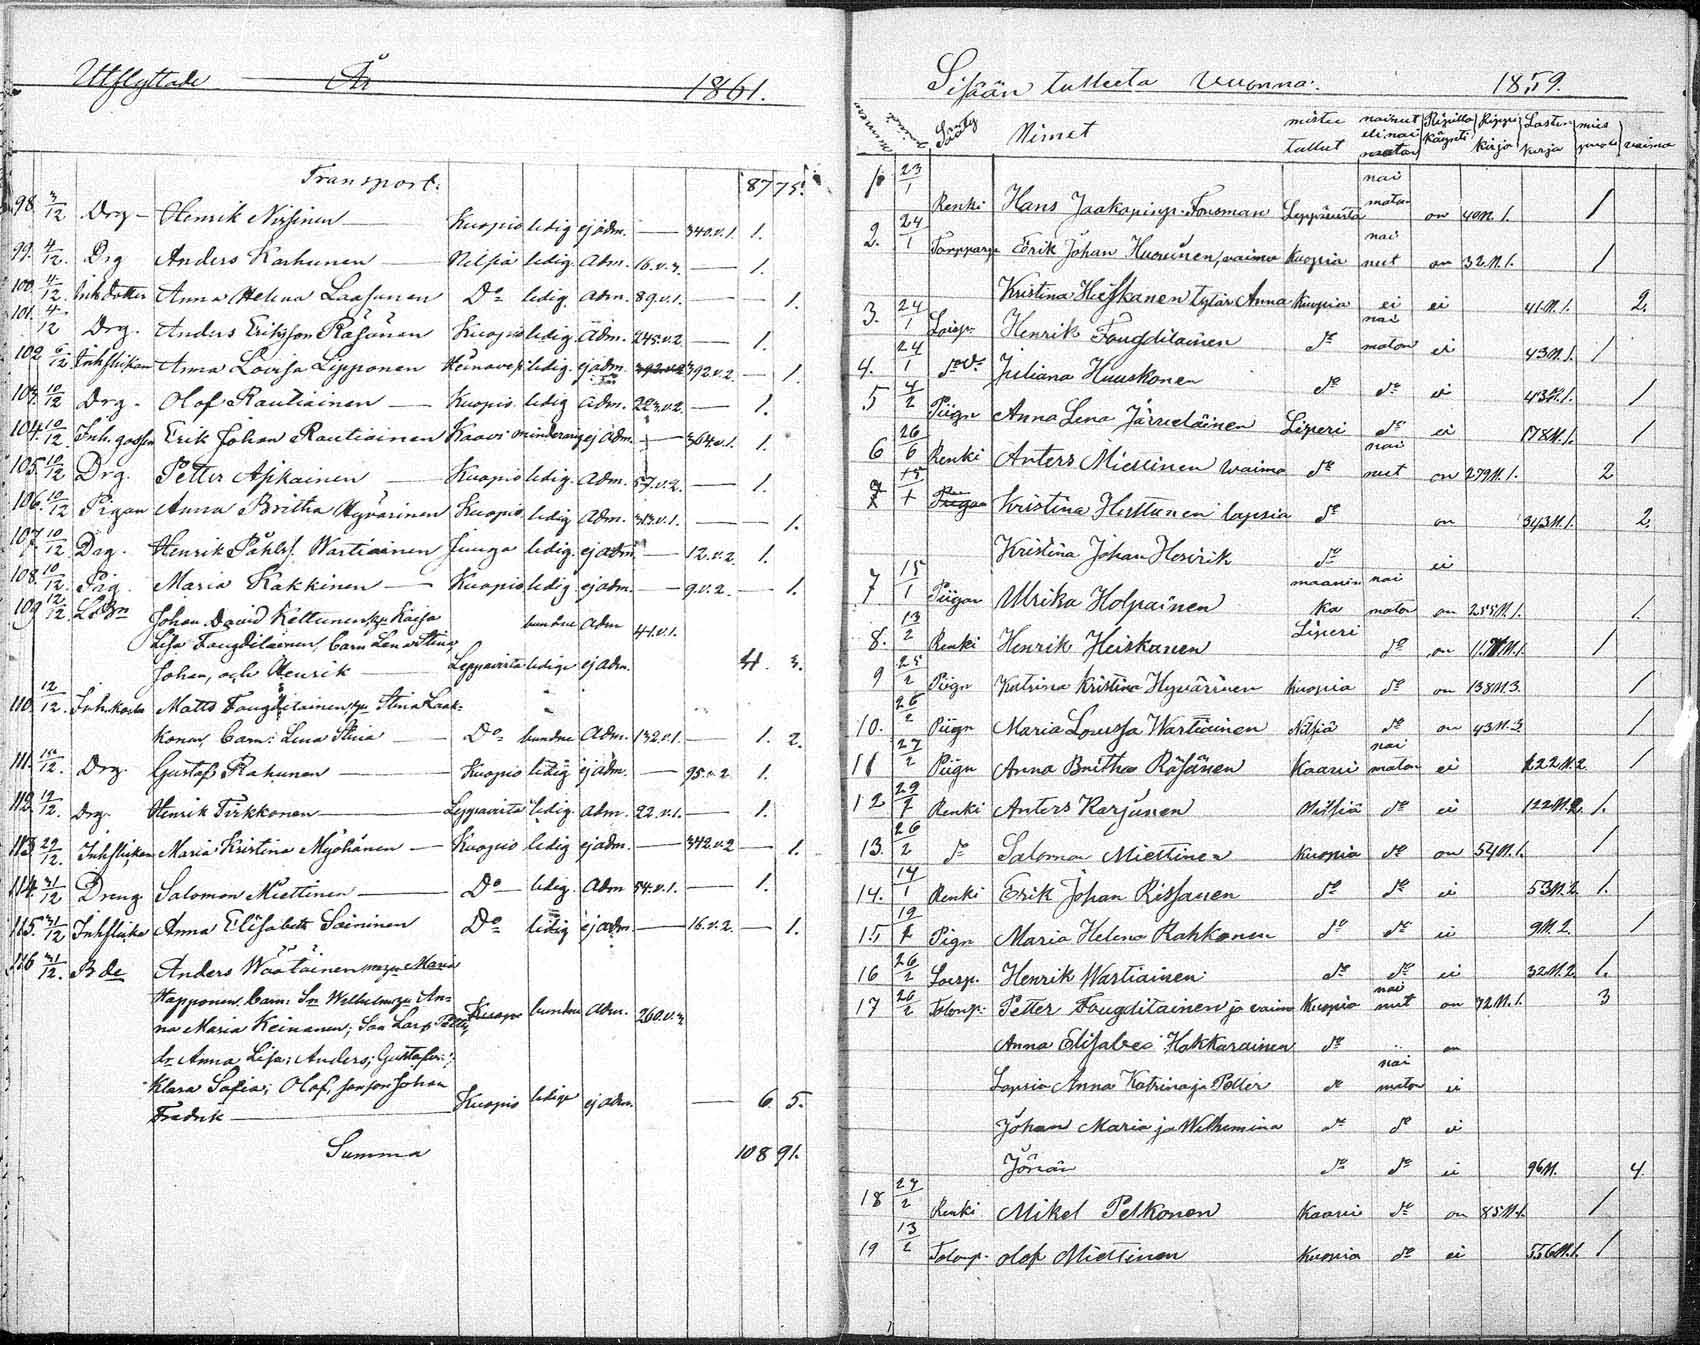 Utflyttade År 1861.
Transport: 87 75.
98. 3/12 Drg - Henrik Nissinen — Kuopio ledig ej adm. — 340.v.1. 1.
99. 4/12. Drg Anders Karhunen — Nilsiä ledig. adm. 16.v.3. — 1.
100. 4/12. Inh dotter Anna Helena Laasunen Do ledig. adm. 89.v.1. — 1.
101. 4/12 Drg. Anders Eriksson Räsänen Kuopio ledig adm. 245.v.2 — 1.
102 6/12 Inhflickan Anna Lovisa Lipponen Heinävesi ledig. ej adm. 392.v.2. — 1.
103. 10/12 Drg - Olof Rautiainen — Kuopio ledig adm. 223.v.2. — 1.
104. 10/12. Inh. gossen Erik Johan Rautiainen Kaavi minderårig ej adm. — 364.v.1. 1.
105. 10/12 Drg. Petter Asikainen — Kuopio ledig. adm. 57.v.2. — 1.
106. 10/12 Pigan Anna Britha Hyvärinen Kuopio ledig adm. 313.v.1. — 1.
107. 10/12 Drg. Henrik Påhlss. Wartiainen Juuga ledig. ej adm. — 12.v.2. 1.
108. 10/12. Pig. Maria Kakkinen — Kuopio ledig. ej adm. — 9.v.2. — 1.
109 12/12 L.Bn Johan David Kettunen hu Kaisa bundne adm 41.v.1.
Lisa Fougditainen, barn Lena Stina,
Johan, och Henrik — Leppävirta ledige ej adm. 4. 3.
110. 12/12. Inh.karlen Matts Fougditainen hu Stina Laak-
konen, barn: Lena Stina — Do bundne adm. 132.v.1. — 1. 2.
111. 12/12. Drg. Gustaf Rahunen — Kuopio ledig ej adm. — 95.v.2 1.
112. 19/12. Drg. Henrik Tirkkonen — Leppävirta ledig. adm. 22.v.1. — 1.
113 29/12. Inhflickan Maria Kristina Myöhänen — Kuopio ledig ej adm. — 342.v.2 — 1.
114. 31/12 Dreng Salomon Miettinen — Do ledig. adm 54.v.1. — 1.
115. 31/12 Inhflicka Anna Elisabeth Saininen Do ledig ej adm. — 16.v.2. — 1.
116 31/12. Bde Anders Wäätäinen Maria
Happonen, barn: Sn Wilhelm hu An-
na Maria Keinanen; Son Lars Petter, Kuopio bundne adm. 260.v.3
dr Anna Lisa; Anders; Gustafva;
Klara Sofia; Olof, sonson Johan
Fredrik — Kuopio ledige ej adm. — 6. 5.
Summa 108 91.
Sisään tulleeta Vuonna: 1859.
Numero Sääty Nimet mistä tullut nainut eli nai matoin Ripillä käynti Rippi kirja Lasten kirja mies puoli vaimo
1. 23/1 Renki Hans Jaakopinp. Forsman Leppävirta nai maton on 40 N.1. 1
2. 24/1 Torppare Erik Johan Huurinen, vaimo Kuopia nai nut on 32.N.1. 1
Kristina Hiskanen tytär Anna Kuopia ei ei 41.N.1. 2.
3. 24/1 Loisp. Henrik Fougditäinen do nai maton ei 43 N.1. 1
4. 24/1 do vo Juliana Huuskonen do do ei 43 N.1. 1
5 4/2 Piign Anna Lena Järveläinen Liperi do ei 178 N.1. 1
6 26/6 Renki Anters Miettinen waimo do nai nut on 279 N.1. 2
7 15/1 Kristina Hirttunen lapsia do on 343 N.1. 2.
Kristina Johan Henrik do ei
7 15/1 Piigan Ulrika Holpainen maanin ka nai maton on 255 N.1. 1.
8. 13/2 Renki Henrik Heiskanen Liperi do on 1
9 25/2 Piign Katrina Kristina Hyvärinen Kuopia do on 138 N.3. 1
10. 26/2 Piign Maria Lovisa Wartiainen Nilsiä do on 43 N.3. 1
11 27/2 Piign Anna Britha Räsänen Kaavi nai maton ei 122 N.2. 1
12 29/2 Renki Anters Karjunen Nilsiä do ei 122 N.2. 1.
13. 26/2 do Salomon Miettinen Kuopia do on 54 N.1. 1
14. 14/1 Renki Erik Johan Rissanen do do ei 53 N.2. 1.
15 19/2 Pign Maria Helena Rahkonen do do ei 9 N.2. 1
16 26/2 Loisp. Henrik Wartiainen do do ei 32 N.2 1.
17 26/2 Petter Fougditainen ja vaim Kuopia nai nut on 72 N.1. 3
Anna Elisabeo Hakkarainen do on
Lapsia Anna Katrina ja Petter do nai maton ei
Johan Maria ja Wilhemina do do ei
Jöran do do ei 96 N. 4.
18 27/2 Renki Mikel Pelkonen Kaavi do on 85 N.1. 1
19 13/2 Olof Miettinen Kuopia do ei 556 N.1. 1